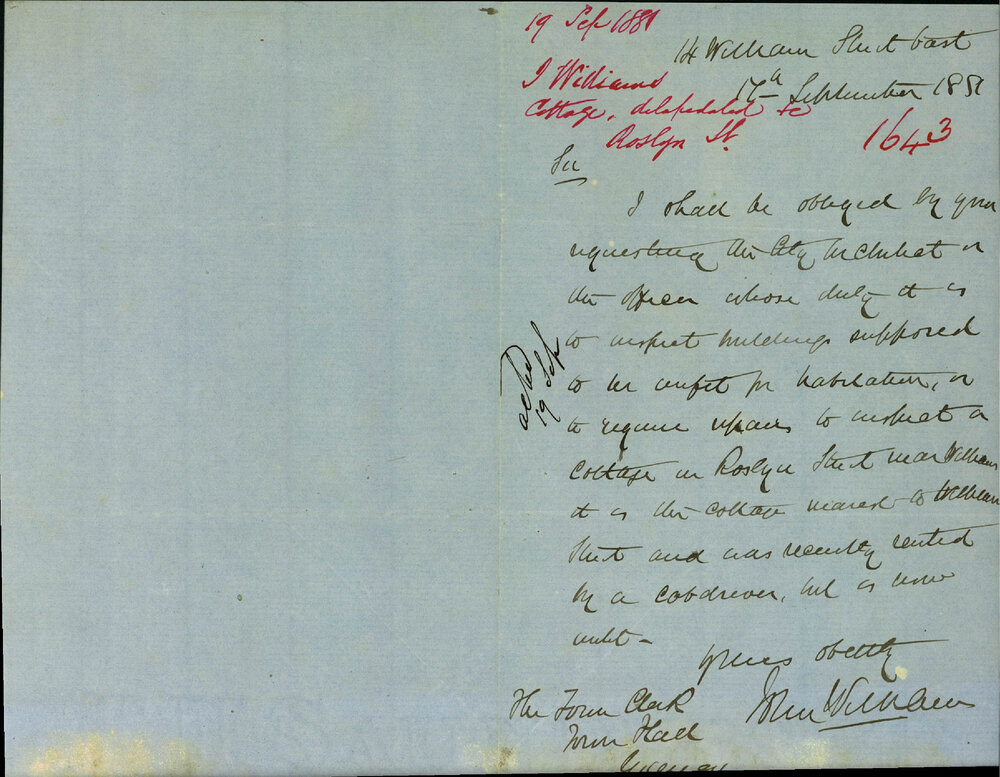 19 Sep 1881
J Williams
Cottage, delapedated &c
Roslyn St.
1643
William Street East
17th September 1881
Sir
I shall be obliged by your
requesting the City Architect or
the officer whose duty it is
to inspect buildings supposed
to be unfit for habitation, or
to require repairs to inspect a
cottage in Roslyn Street near William
it is the cottage nearest to William
Street and was recently rented
by a cabdriver, but is now
unlet -
Yours obedtly
John Williams
The Town Clerk
Town Hall
Sydney
acted
19 Sep